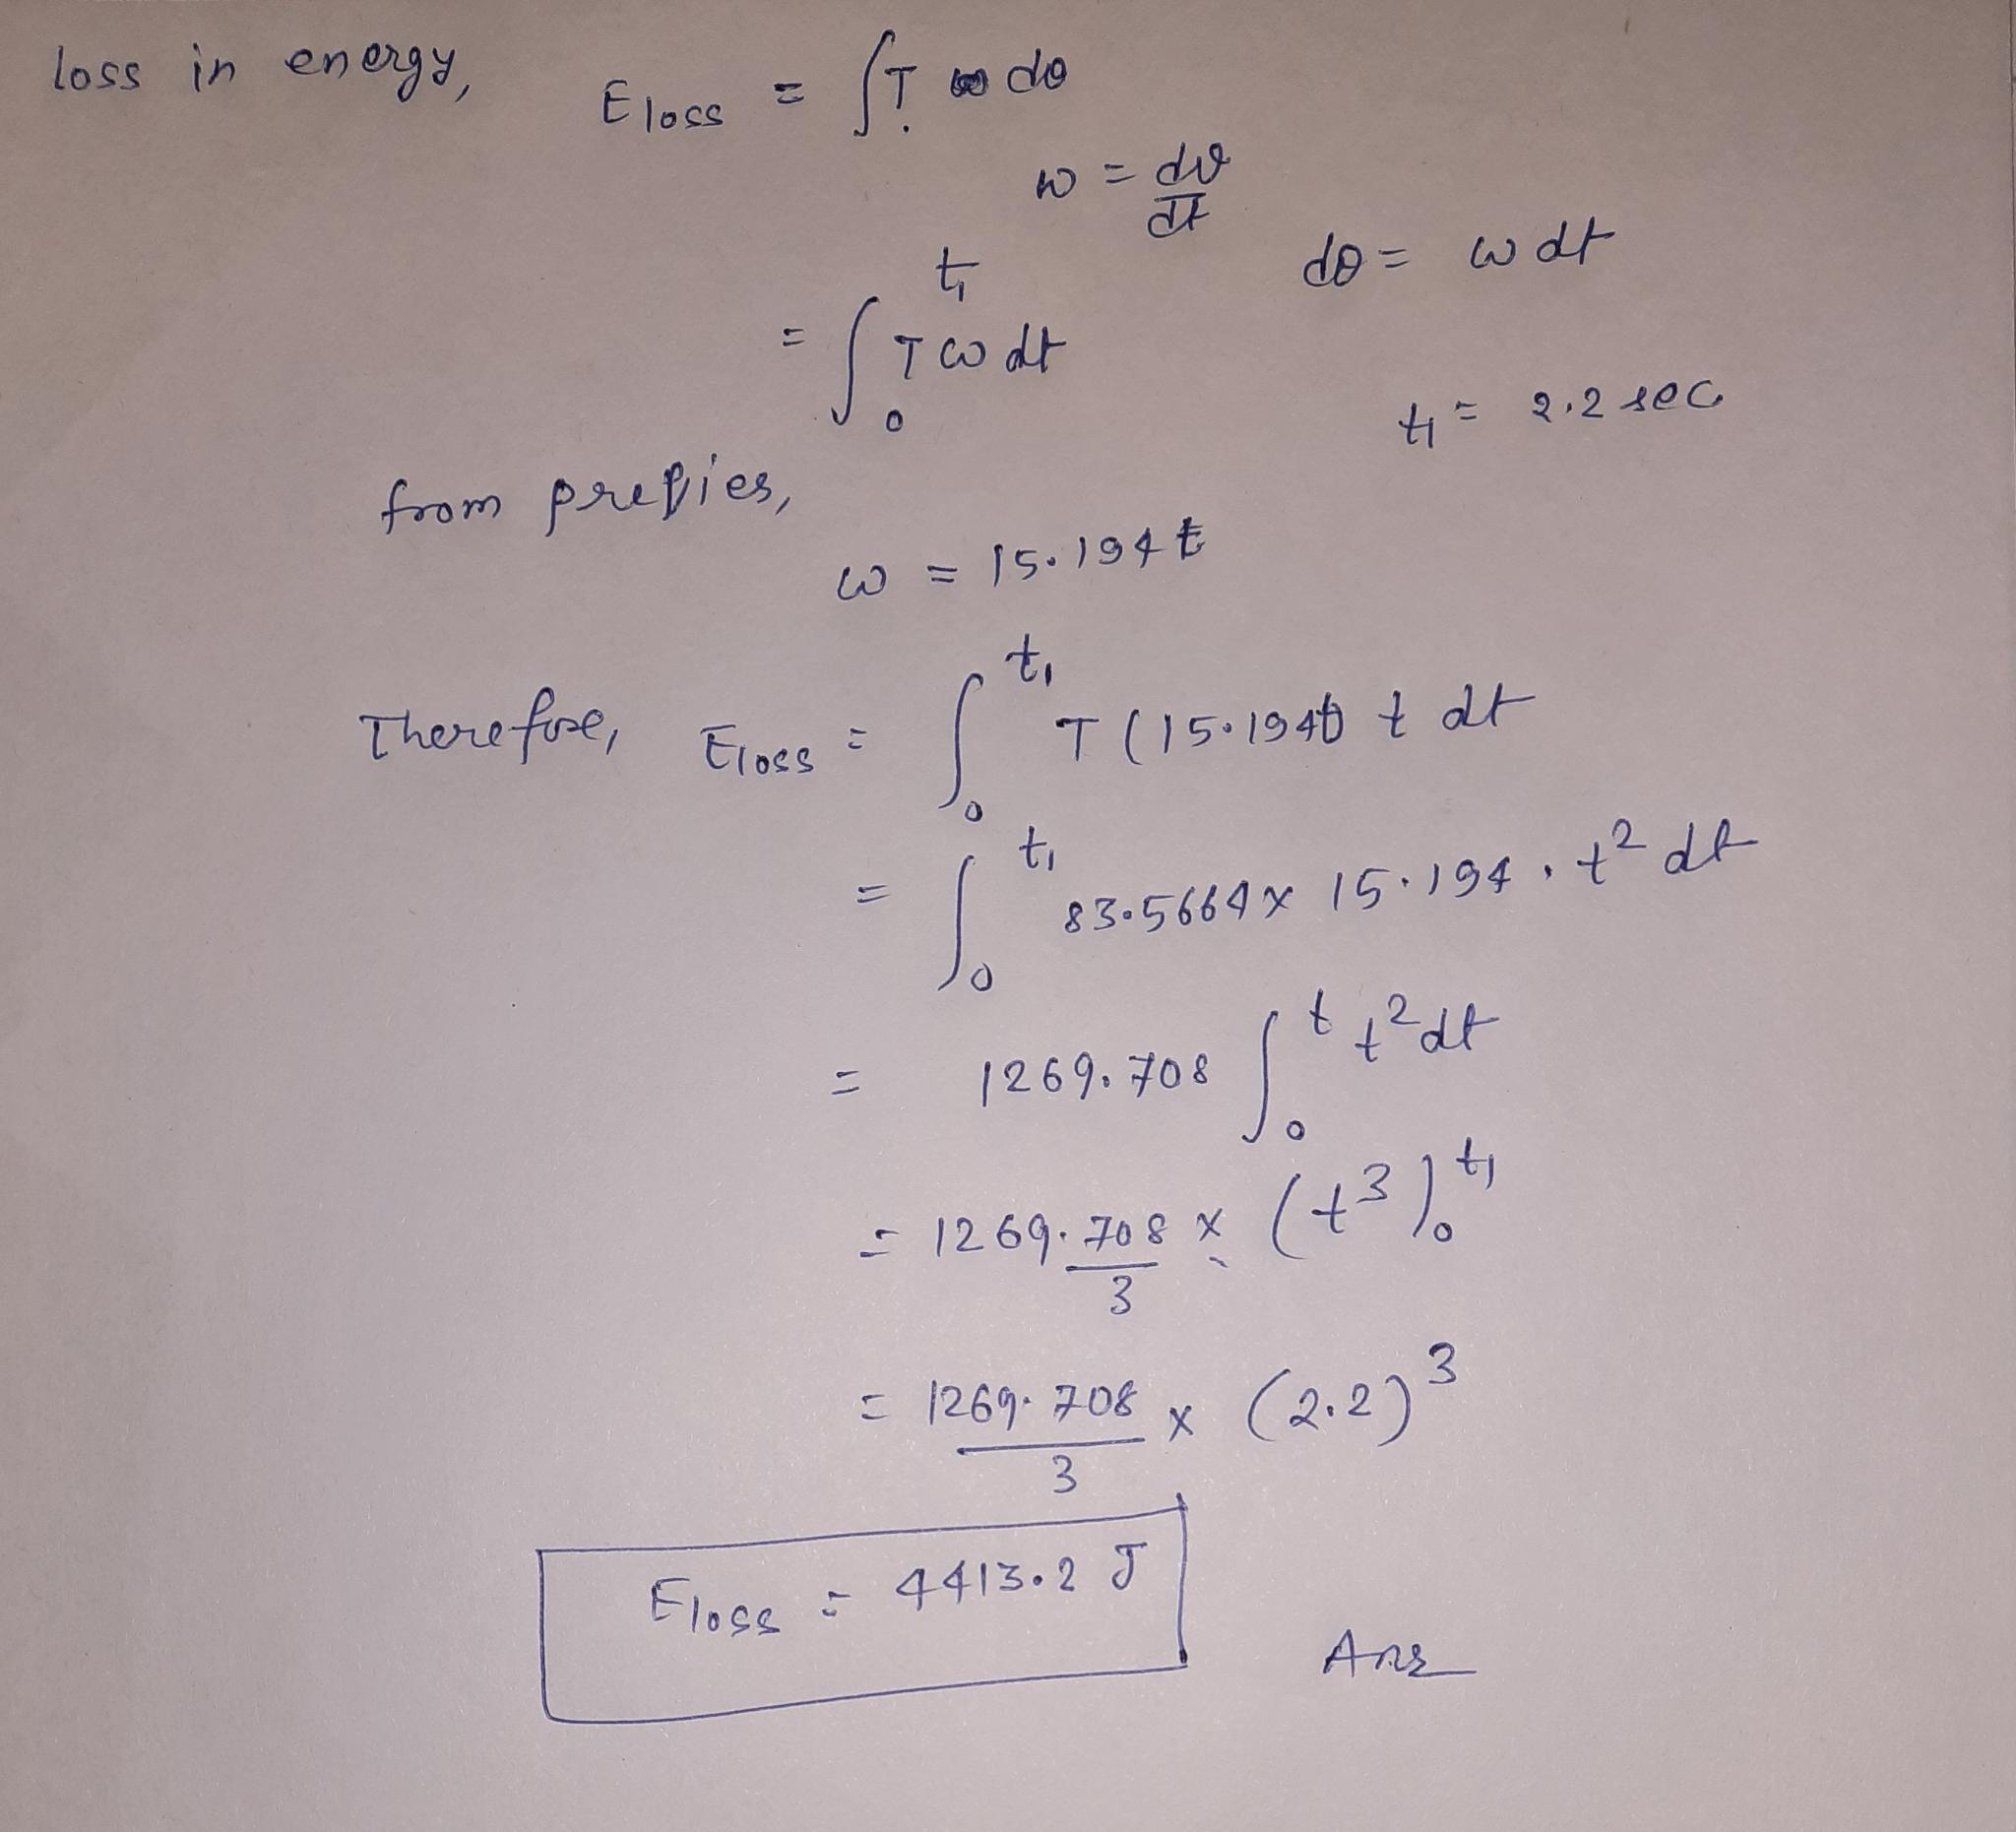 loss in energy, Eloss = ∫T dθ
ω = dθ/dt
dθ = ω dt
= ∫₀^t₁ T ω dt
t₁ = 2.2 sec
from
ω = 15.194 t
Therefore, Eloss = ∫₀^t₁ T (15.194) t dt
= ∫₀^t₁ 83.5664 x 15.194 . t² dt
= 1269.708 ∫₀^t t² dt
= 1269.708/3 x (t³)₀^t₁
= 1269.708/3 x (2.2)³
Eloss = 4413.2 J
Ans